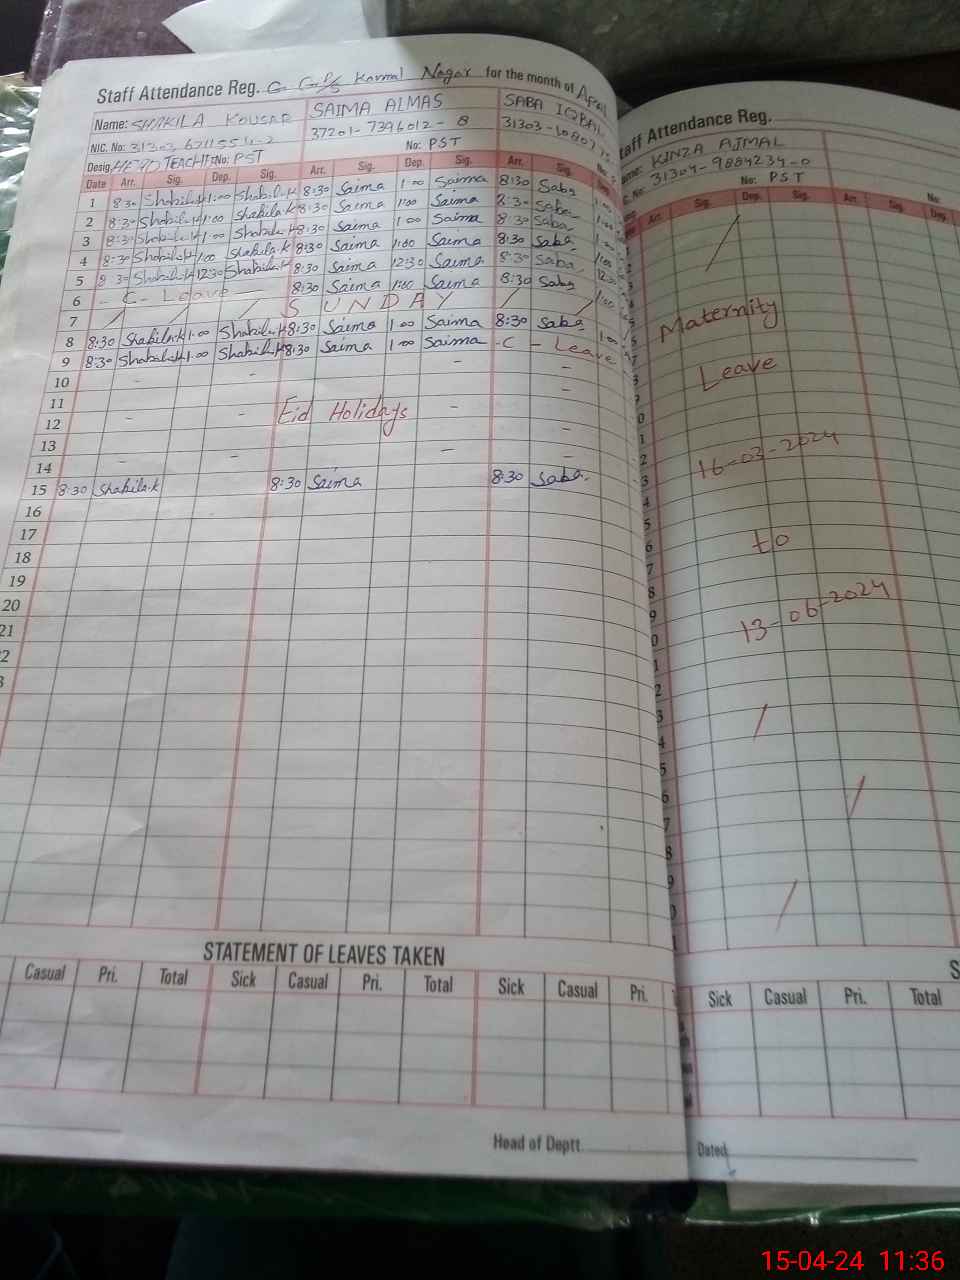 Staff Attendance Reg. G G P/S Karmal Nagar for the month of April
Name: SHAKILA KOUSAR SAIMA ALMAS SABA IQBAL
NIC. No: 37201-7396012-8
Desig: HEAD TEACHER No: PST No: PST
Date Arr. Sig. Dep. Sig. Arr. Sig. Dep. Sig. Arr. Sig.
1 8:30 Shakila.K 1:00 Shakila.K 8:30 Saima 1:00 Saima 8:30 Saba
2 8:30 Shakila.K 1:00 Shakila.K 8:30 Saima 1:00 Saima 8:30 Saba
3 8:30 Shakila.K 1:00 Shakila.K 8:30 Saima 1:00 Saima 8:30 Saba
4 8:30 Shakila.K 1:00 Shakila.K 8:30 Saima 1:00 Saima 8:30 Saba
5 8:30 Shakila.K 12:30 Shakila.K 8:30 Saima 12:30 Saima 8:30 Saba
6 - C - Leave 8:30 Saima 1:00 Saima 8:30 Saba 1:00
7 SUNDAY
8 8:30 Shakila.K 1:00 Shakila.K 8:30 Saima 1:00 Saima 8:30 Saba 1:00
9 8:30 Shakila.K 1:00 Shakila.K 8:30 Saima 1:00 Saima -C - Leave
10
11
12 Eid Holidays
13
14
15 8:30 Shakila.K 8:30 Saima 8:30 Saba
16
17
18
19
20
21
STATEMENT OF LEAVES TAKEN
Casual Pri. Total Sick Casual Pri. Total Sick Casual Pri.
Head of Deptt
Staff Attendance Reg.
KINZA AJMAL
31304-9884234-0
No: PST No:
Arr. Sig. Dep. Sig. Arr. Sig. Dep.
Maternity
Leave
16-03-2024
to
13-06-2024
Sick Casual Pri. Total
Dated
15-04-24 11:36